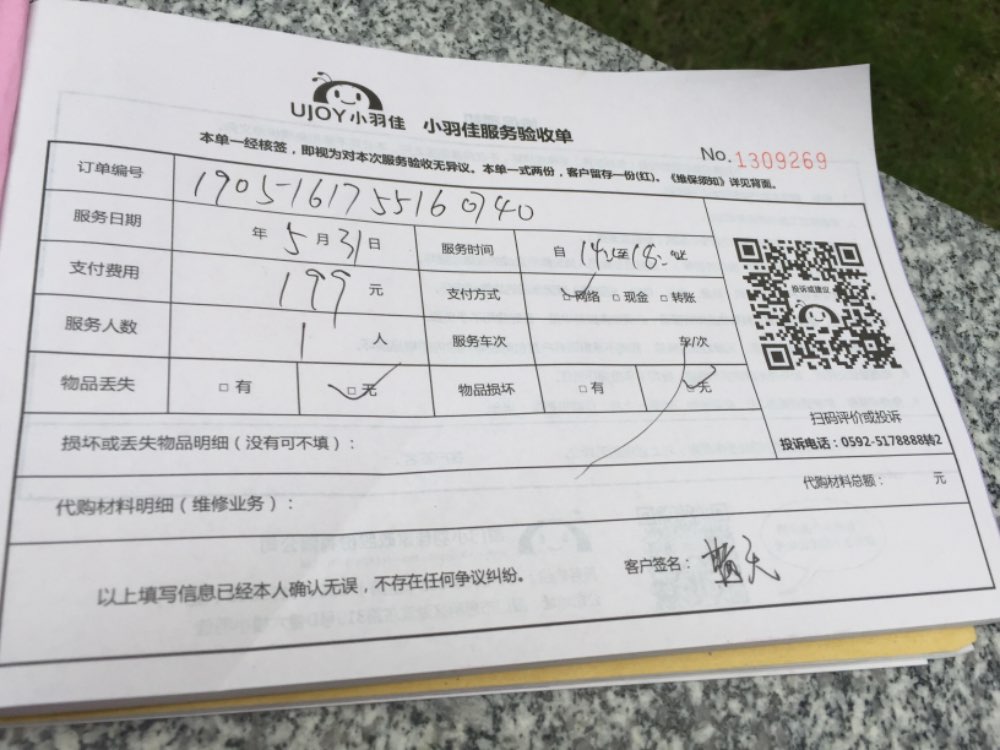 UJOY小羽佳 小羽佳服务验收单
No.1309269
本单一经核签，即视为对本次服务验收无异议。本单一式两份，客户留存一份(红)。《维保须知》详见背面。
订单编号 1905161755160740
服务日期 年 5 月 31 日 服务时间 自 14: 至 18:
支付费用 199 元 支付方式 □网络 □现金 □转账
服务人数 1 人 服务车次 车/次
物品丢失 □有 □无 物品损坏 □有 □无
投诉或建议
扫码评价或投诉
投诉电话：0592-5178888转2
损坏或丢失物品明细（没有可不填）：
代购材料明细（维修业务）：
代购材料总额： 元
以上填写信息已经本人确认无误，不存在任何争议纠纷。
客户签名：